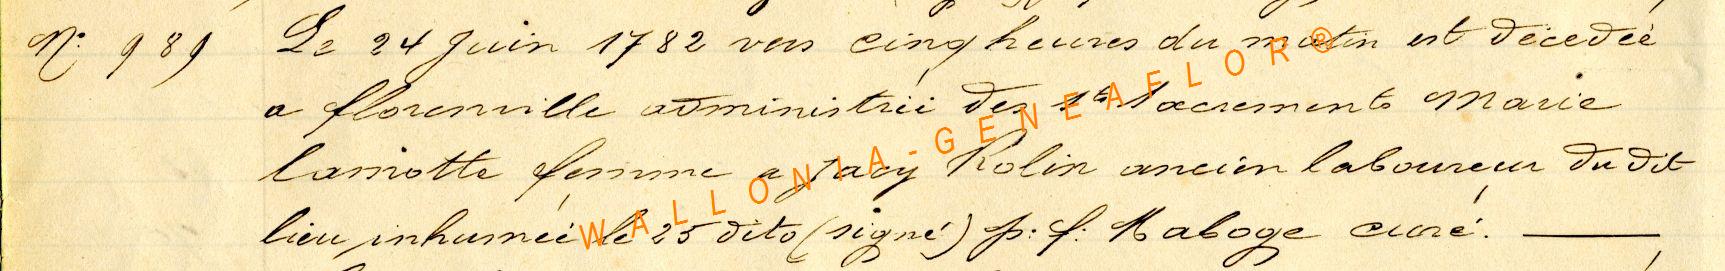 N° 989 Le 24 Juin 1782 vers cinq heures du matin est décedée
a florenville administrée des sts sacrements Marie
lamotte femme a jacq Rolin ancien laboureur du dit
lieu, inhumée le 25 dito (signé) p: f: Maboge curé.
WALLONIA-GENEAFLOR®